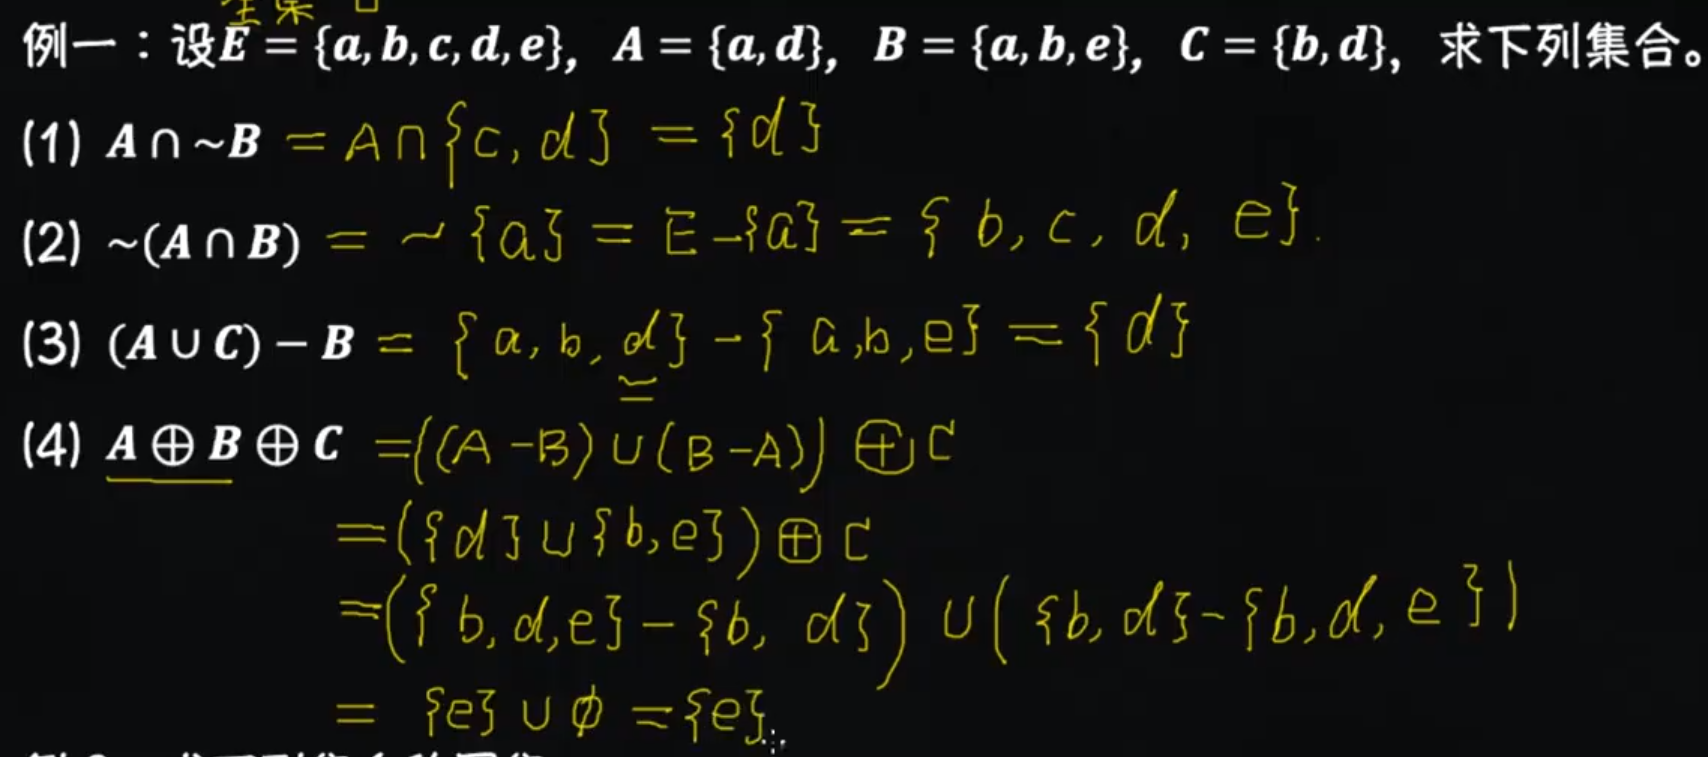 全集
例一：设E = {a, b, c, d, e}, A = {a, d}, B = {a, b, e}, C = {b, d}, 求下列集合。
(1) A ∩ ~B = A∩{c, d} = {d}
(2) ~(A ∩ B) = ~{a} = E-{a} = {b, c, d, e}.
(3) (A ∪ C) − B = {a, b, d} - {a,b,e} = {d}
(4) A ⊕ B ⊕ C =((A-B)∪(B-A))⊕C
=({d}∪{b,e})⊕C
=({b,d,e}-{b, d})∪({b,d}-{b,d,e})
= {e}∪∅={e}.